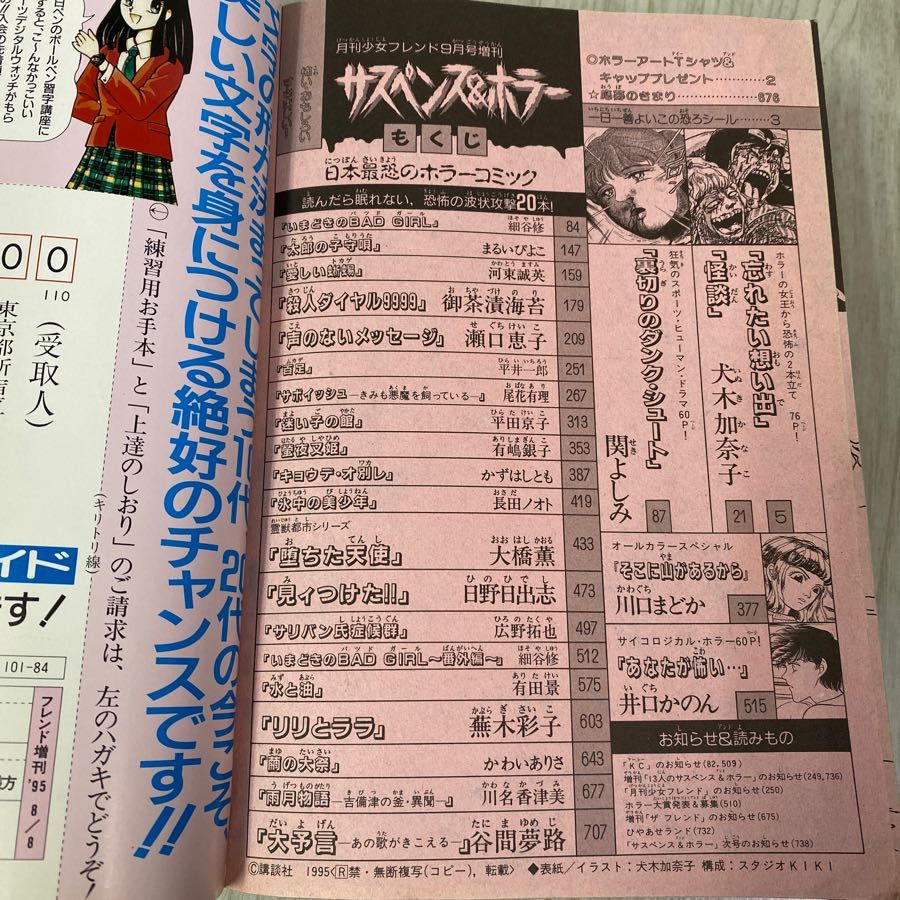 月刊少女フレンド9月号増刊
サスペンス&ホラー
もくじ
日本最恐のホラーコミック
読んだら眠れない、恐怖の波状攻撃20本!
『いまどきのBAD GIRL』 細谷修 84
『太郎の子守唄』 まるいぴよこ 147
『愛しい蜥蜴』 河東誠英 159
『殺人ダイヤル9999』 御茶漬海苔 179
『声のないメッセージ』 瀬口恵子 209
『百足』 平井一郎 251
『サボイッシュ―きみも悪魔を飼っている―』 尾花有理 267
『迷い子の館』 平田京子 313
『蛍夜叉姫』 有嶋銀子 353
『キョウテ・オ別レ』 かずはしとも 387
『氷中の美少年』 長田ノオト 419
霊獣都市シリーズ
『堕ちた天使』 大橋薫 433
『見ィつけた!!』 日野日出志 473
『サリバン氏症候群』 広野拓也 497
『いまどきのBAD GIRL〜番外編〜』 細谷修 512
『水と油』 有田景 575
『リリとララ』 蕪木彩子 603
『繭の大祭』 かわいありさ 643
『雨月物語―吉備津の釜・異聞―』 川名香津美 677
『大予言―あの歌がきこえる―』 谷間夢路 707
◎ホラーアートTシャツ&
キャッププレゼント 2
☆応募のきまり 676
一日一善よいこの恐ろシール 3
ホラーの女王から恐怖の2本立て 76P!
『忘れたい想い出』 5
『怪談』 21
犬木加奈子
狂気のスポーツ・ヒューマン・ドラマ60P!
『裏切りのダンク・シュート』
関よしみ 87
オールカラースペシャル
『そこに山があるから』
川口まどか 377
サイコロジカル・ホラー60P!
『あなたが怖い…』
井口かのん 515
お知らせ&読みもの
「KC」のお知らせ(82,509)
増刊「13人のサスペンス&ホラー」のお知らせ(249,736)
「月刊少女フレンド」のお知らせ(250)
ホラー大賞発表&募集(510)
増刊「ザ フレンド」のお知らせ(675)
ひやあせランド(732)
「サスペンス&ホラー」次号のお知らせ(738)
©講談社 1995〈R禁・無断複写(コピー)，転載〉 ◆表紙/イラスト：犬木加奈子 構成：スタジオKIKI
日ペンのボールペン習字講座に
すると、こ〜んなかっこいい
ーツデジタルウォッチがもら
美しい文字を身につける絶好のチャンスです!!
10代、20代の今こそ、
「練習用お手本」と「上達のしおり」のご請求は、左のハガキでどうぞ!
(キリトリ線)
00
110
(受取人)
イド
です!
101-84
フレンド増刊'95 8/8